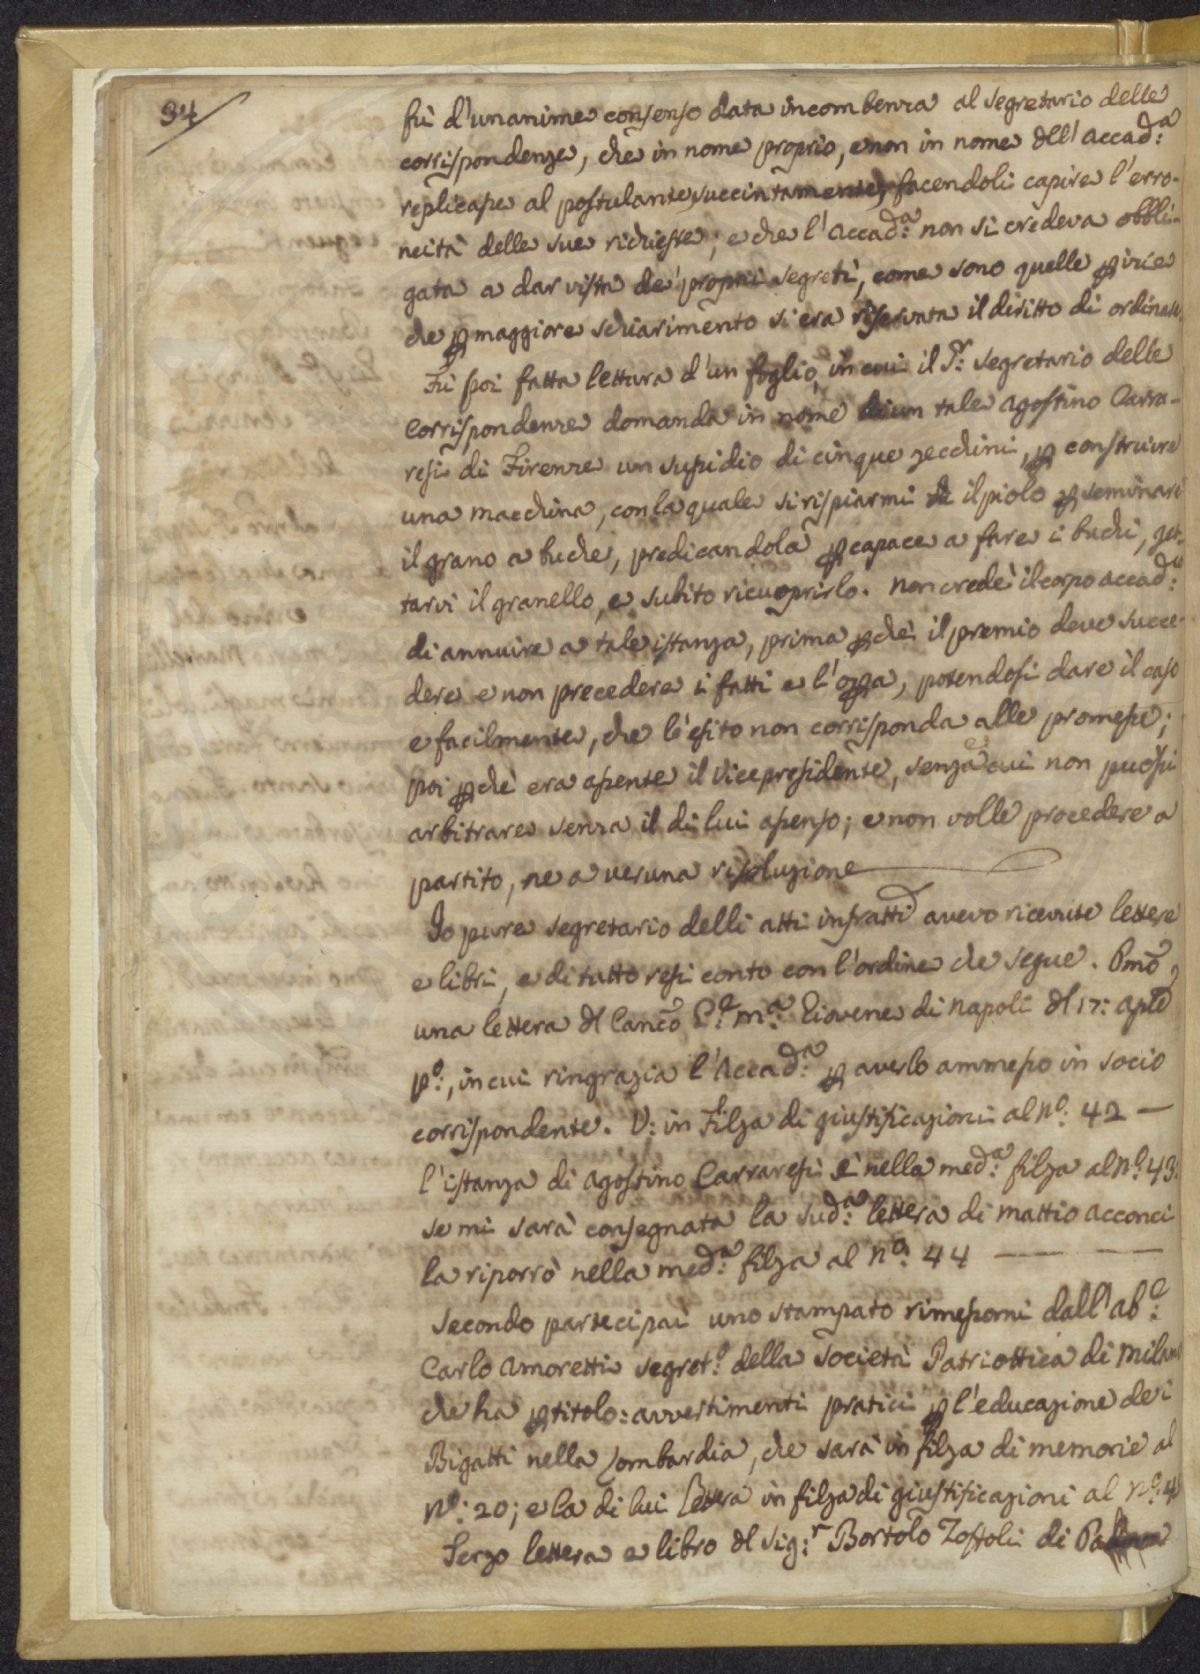 94
fù d'unanime consenso data incombenza al segretario delle
corrispondenze, che in nome proprio, e non in nome dell'Accad:a
replicasse al postulante succintamente, facendoli capire l'erro-
neità delle sue richieste; e che l'Accad:a non si credeva obbli-
gata a dar vista de' proprii segreti, come sono quelle
che p maggiore schiarimento si era riservata il diritto di ordinare
Fù poi fatta lettura d'un foglio, in cui il Sr: segretario delle
corrispondenze domanda in nome di un tale Agostino Carra-
resi di Firenze un susidio di cinque zecchini, p construire
una macchina, con la quale si rispiarmi il piolo p seminare
il grano a buche, predicandola p capace a fare i buchi, get-
tarvi il granello, e subito ricuoprirlo. Non credè il corpo accad:co
di annuire a tale istanza, prima pchè il premio deve succe-
dere e non precedere i fatti e l'opa, potendosi dare il caso
e facilmente, che l'esito non corrisponda alle promesse;
poi pchè era assente il Vicepresidente, senza cui non puossi
arbitrare senza il di lui assenso; e non volle procedere a
partito, ne a veruna risoluzione
Io pure segretario delli atti infratti avevo ricevute lettere
e libri, e di tutto resi conto con l'ordine che segue. Pmo
una lettera dl Canco Giovene di Napoli dl 17: aple
po:, in cui ringrazia l'Accad:a p averlo ammesso in socio
corrispondente. V: in Filza di giustificazioni al No: 42 —
l'istanza di Agostino Carraresi è nella med:a filza al No: 43:
se mi sarà consegnata la sud:a lettera di Mattio Acconci
la riporrò nella med:a filza al No: 44 — —
Secondo partecipai uno stampato rimessomi dall'ab:e
Carlo Amoretti segret:o della Società Patriottica di Milano
che ha p titolo: avvertimenti pratici p l'educazione dei
Bigatti nella Lombardia, che sarà in filza di memorie al
No: 20; e la di lui lettera in filza di giustificazioni al No:
Terzo lettera e libro dl Sig:r Bortolo Zoffoli di